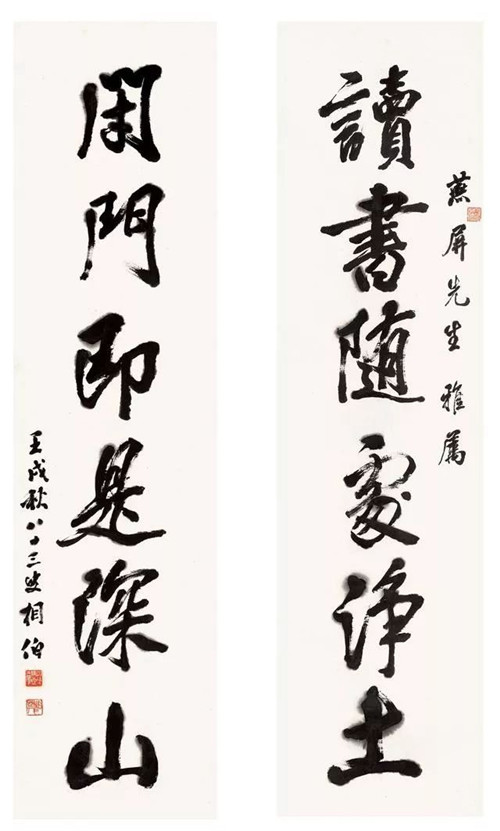 燕屏先生雅屬
讀書随處净土
閉門即是深山
壬戌秋八十三叟相伯